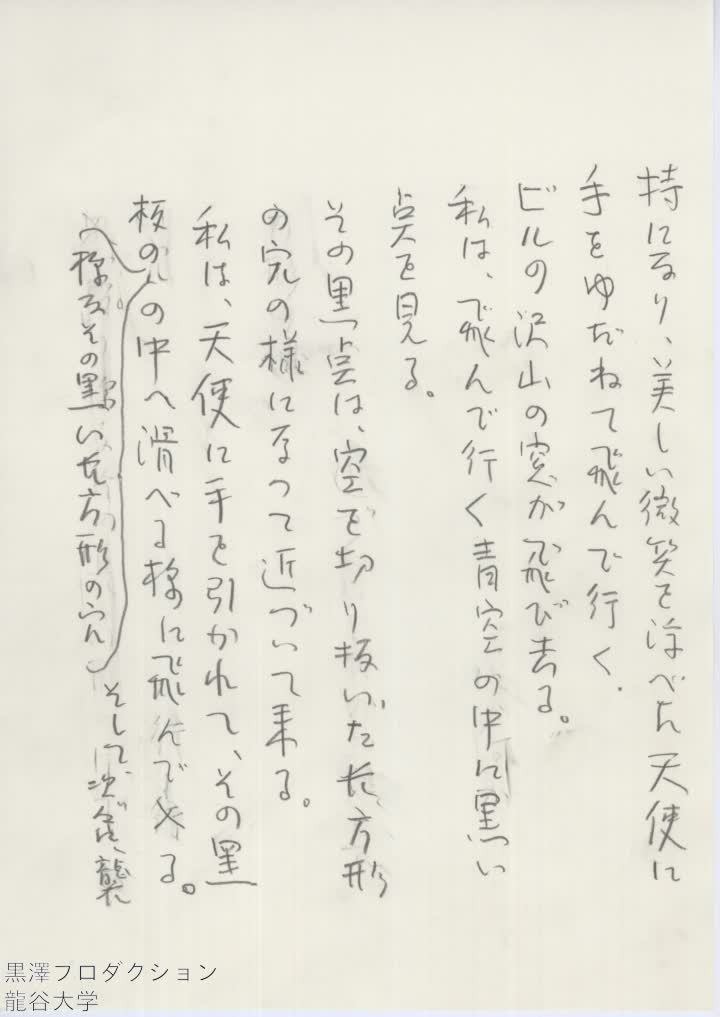 持になり、美しい微笑を浮べた天使に
手をゆだねて飛んで行く.
ビルの沢山の窓が飛び去る。
私は、飛んで行く青空の中に黒い
点を見る。
その黒点は、空を切り抜いた長方形
の穴の様になって近づいて来る。
私は、天使に手を引かれて、その黒
板の の中へ滑べる様に飛んで る。
様なその黒い長方形の穴
そして次 、襲
黒澤フロダクション
龍谷大学